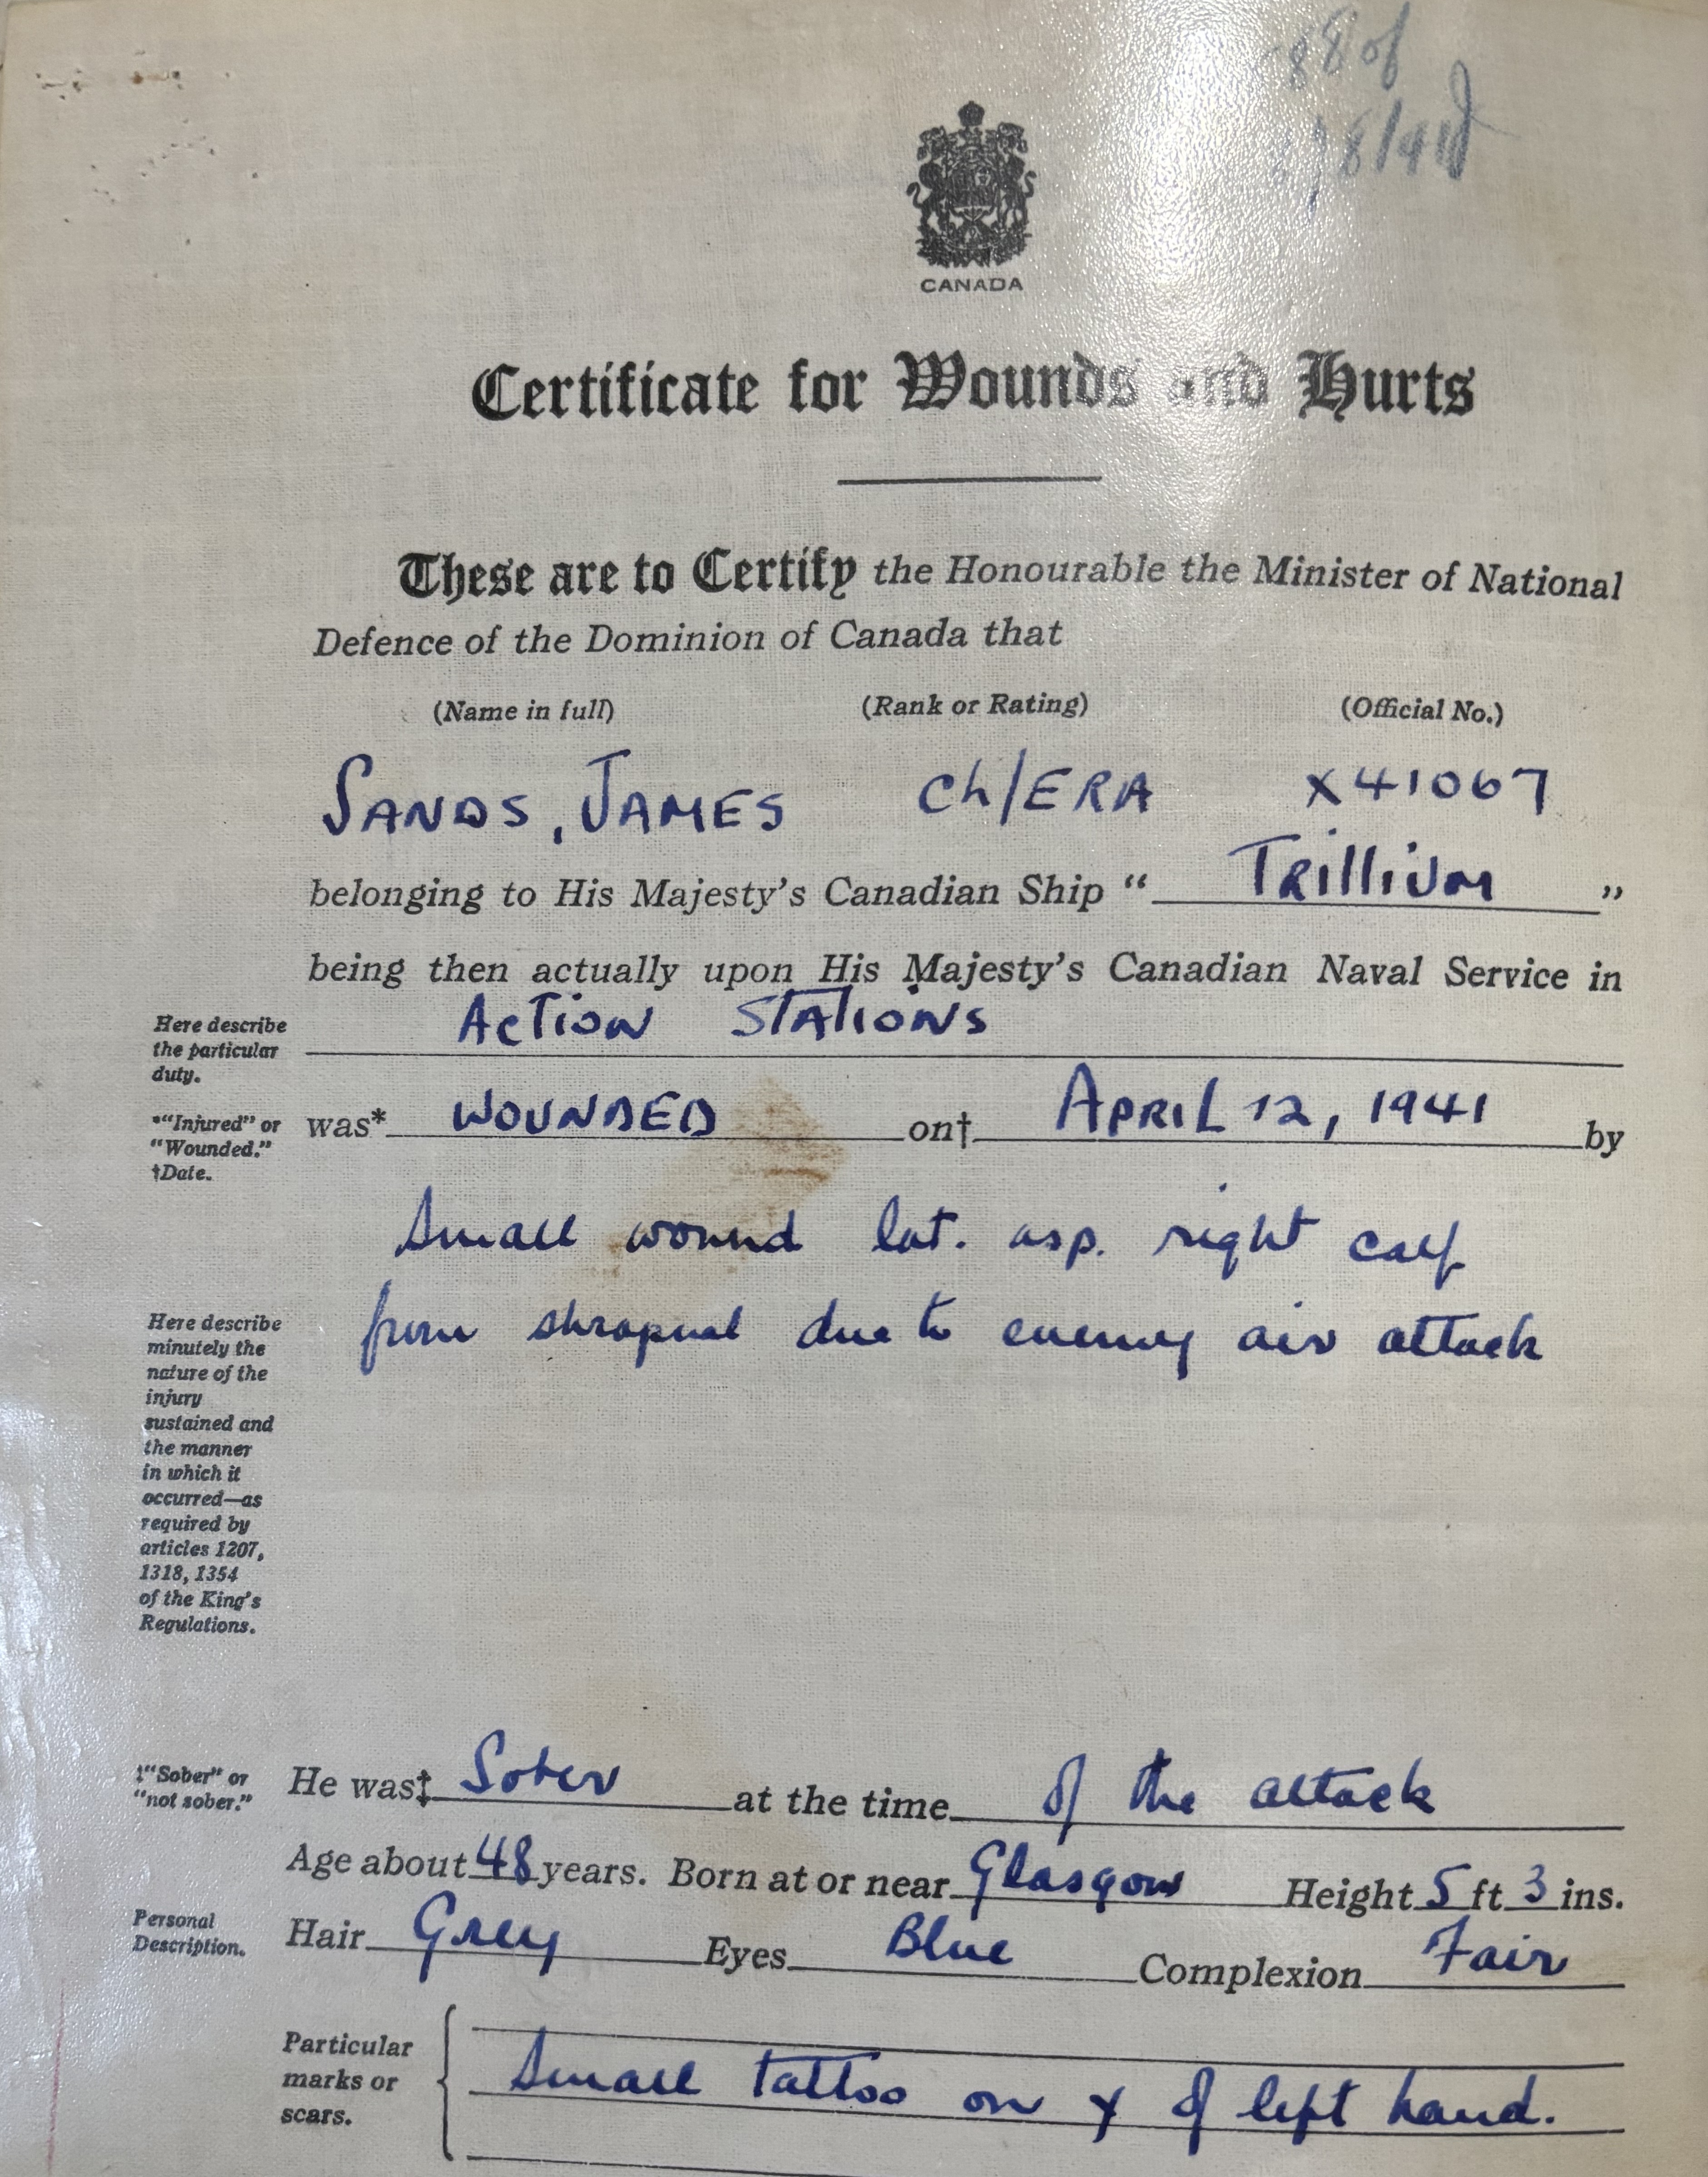 88 of
8/41
CANADA
Certificate for Wounds and Hurts
These are to Certify the Honourable the Minister of National
Defence of the Dominion of Canada that
(Name in full) (Rank or Rating) (Official No.)
SANDS, JAMES Ch/ERA X41067
belonging to His Majesty's Canadian Ship “ TRillium ”
being then actually upon His Majesty's Canadian Naval Service in
Here describe the particular duty.
Action Stations
*“Injured” or “Wounded.” †Date.
was* WOUNDED on† APRIL 12, 1941 by
Small wound lat. asp. right calf
from shrapnel due to enemy air attack
Here describe
minutely the
nature of the
injury
sustained and
the manner
in which it
occurred—as
required by
articles 1207,
1318, 1354
of the King's
Regulations.
‡“Sober” or “not sober.”
He was‡ Sober at the time of the attack
Age about 48 years. Born at or near Glasgow Height 5 ft 3 ins.
Personal Description.
Hair Grey Eyes Blue Complexion Fair
Particular marks or scars.
Small tattoo on of left hand.